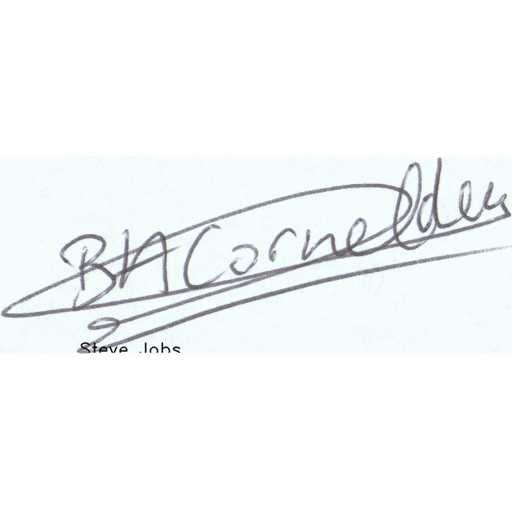 BACornelder
Steve Jobs